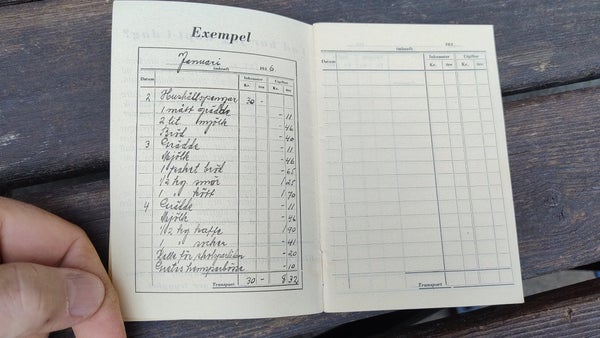 Exempel
Januari 193 6
(månad)
Datum Inkomster Utgifter
Kr. öre Kr. öre
2 Hushållspengar 30 -
1 mått grädde - 11
2 lit. mjölk - 46
Bröd - 40
3 Grädde - 11
Mjölk - 46
bröd - 65
1/2 kg smör 1 25
1 " kött 1 70
4 Grädde - 11
Mjölk - 46
1/2 kg kaffe 1 90
1 " socker - 41
- 20
- 10
Transport 30 - 8 32
193
(månad)
Datum Inkomster Utgifter
Kr. öre Kr. öre
Transport